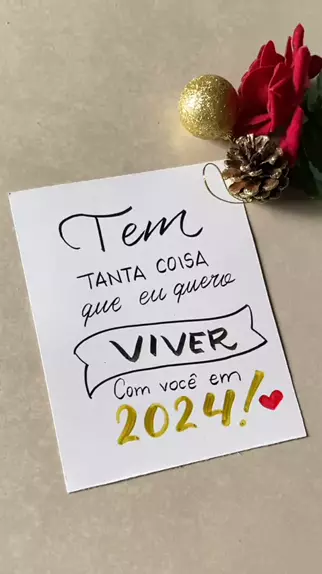 Tem
TANTA COISA
que eu quero
VIVER
Com você em
2024!